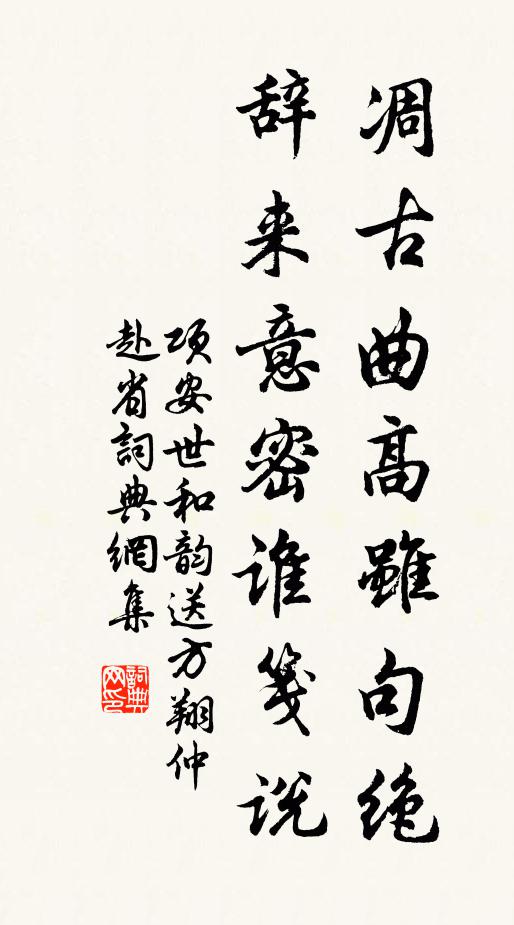 凋古曲高雖句绝
辞来意密谁笺说
项安世和韵送方翔仲
赴省詞典網集
詞典
网印